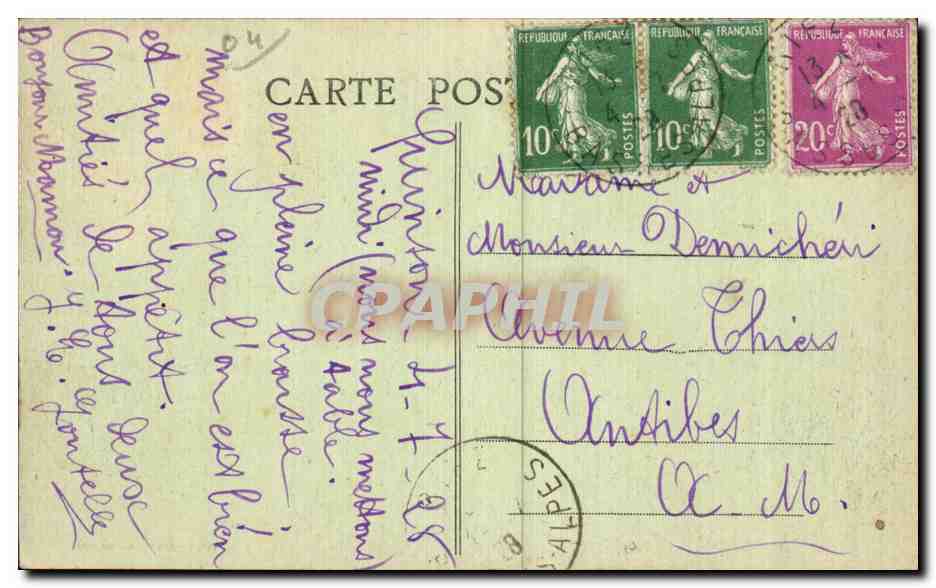 04
CARTE POST
REPUBLIQUE FRANÇAISE
10c POSTES
REPUBLIQUE FRANÇAISE
10c POSTES
REPUBLIQUE FRANÇAISE
20c POSTES
Quinson 4-7-28
midi (nous nous mettons
à table)
en pleine brousse
mais ce que l'on est bien
et quel appétit.
Amitiés de tous les deux
Y. R.
Bonjour Maman.
Madame et
Monsieur Demichéri
Avenue Thiers
Antibes
A-M.
ALPES
CPAPHIL